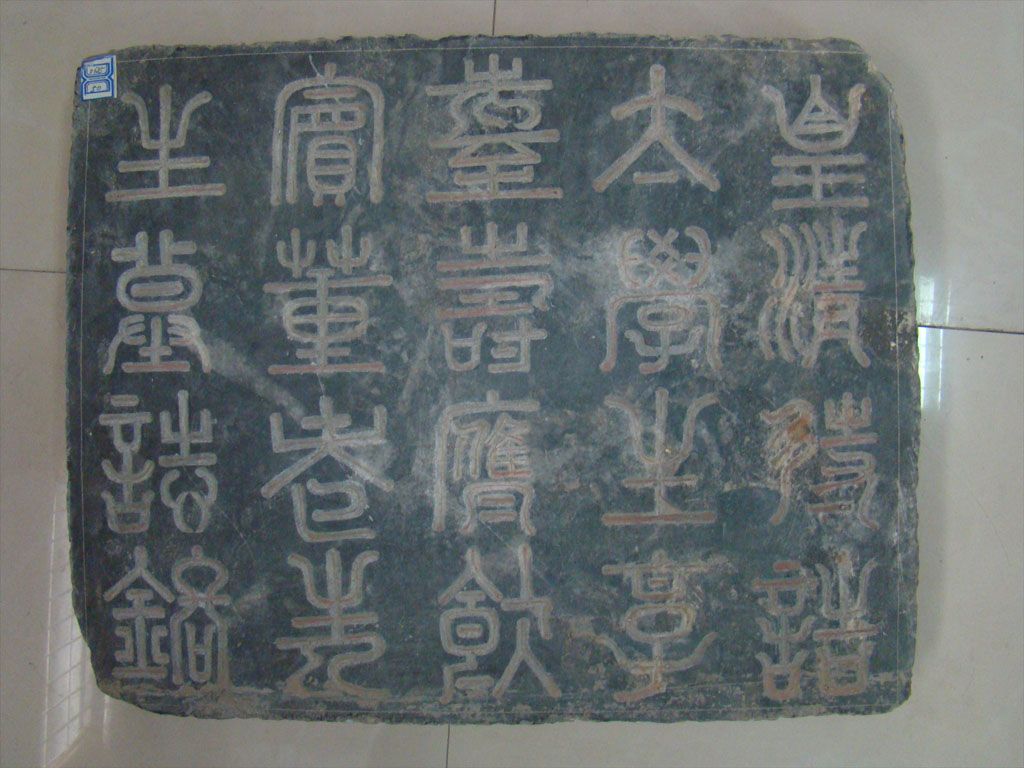 皇清待誥
太學生享
耋壽應飲
賓董老先
生墓誌銘